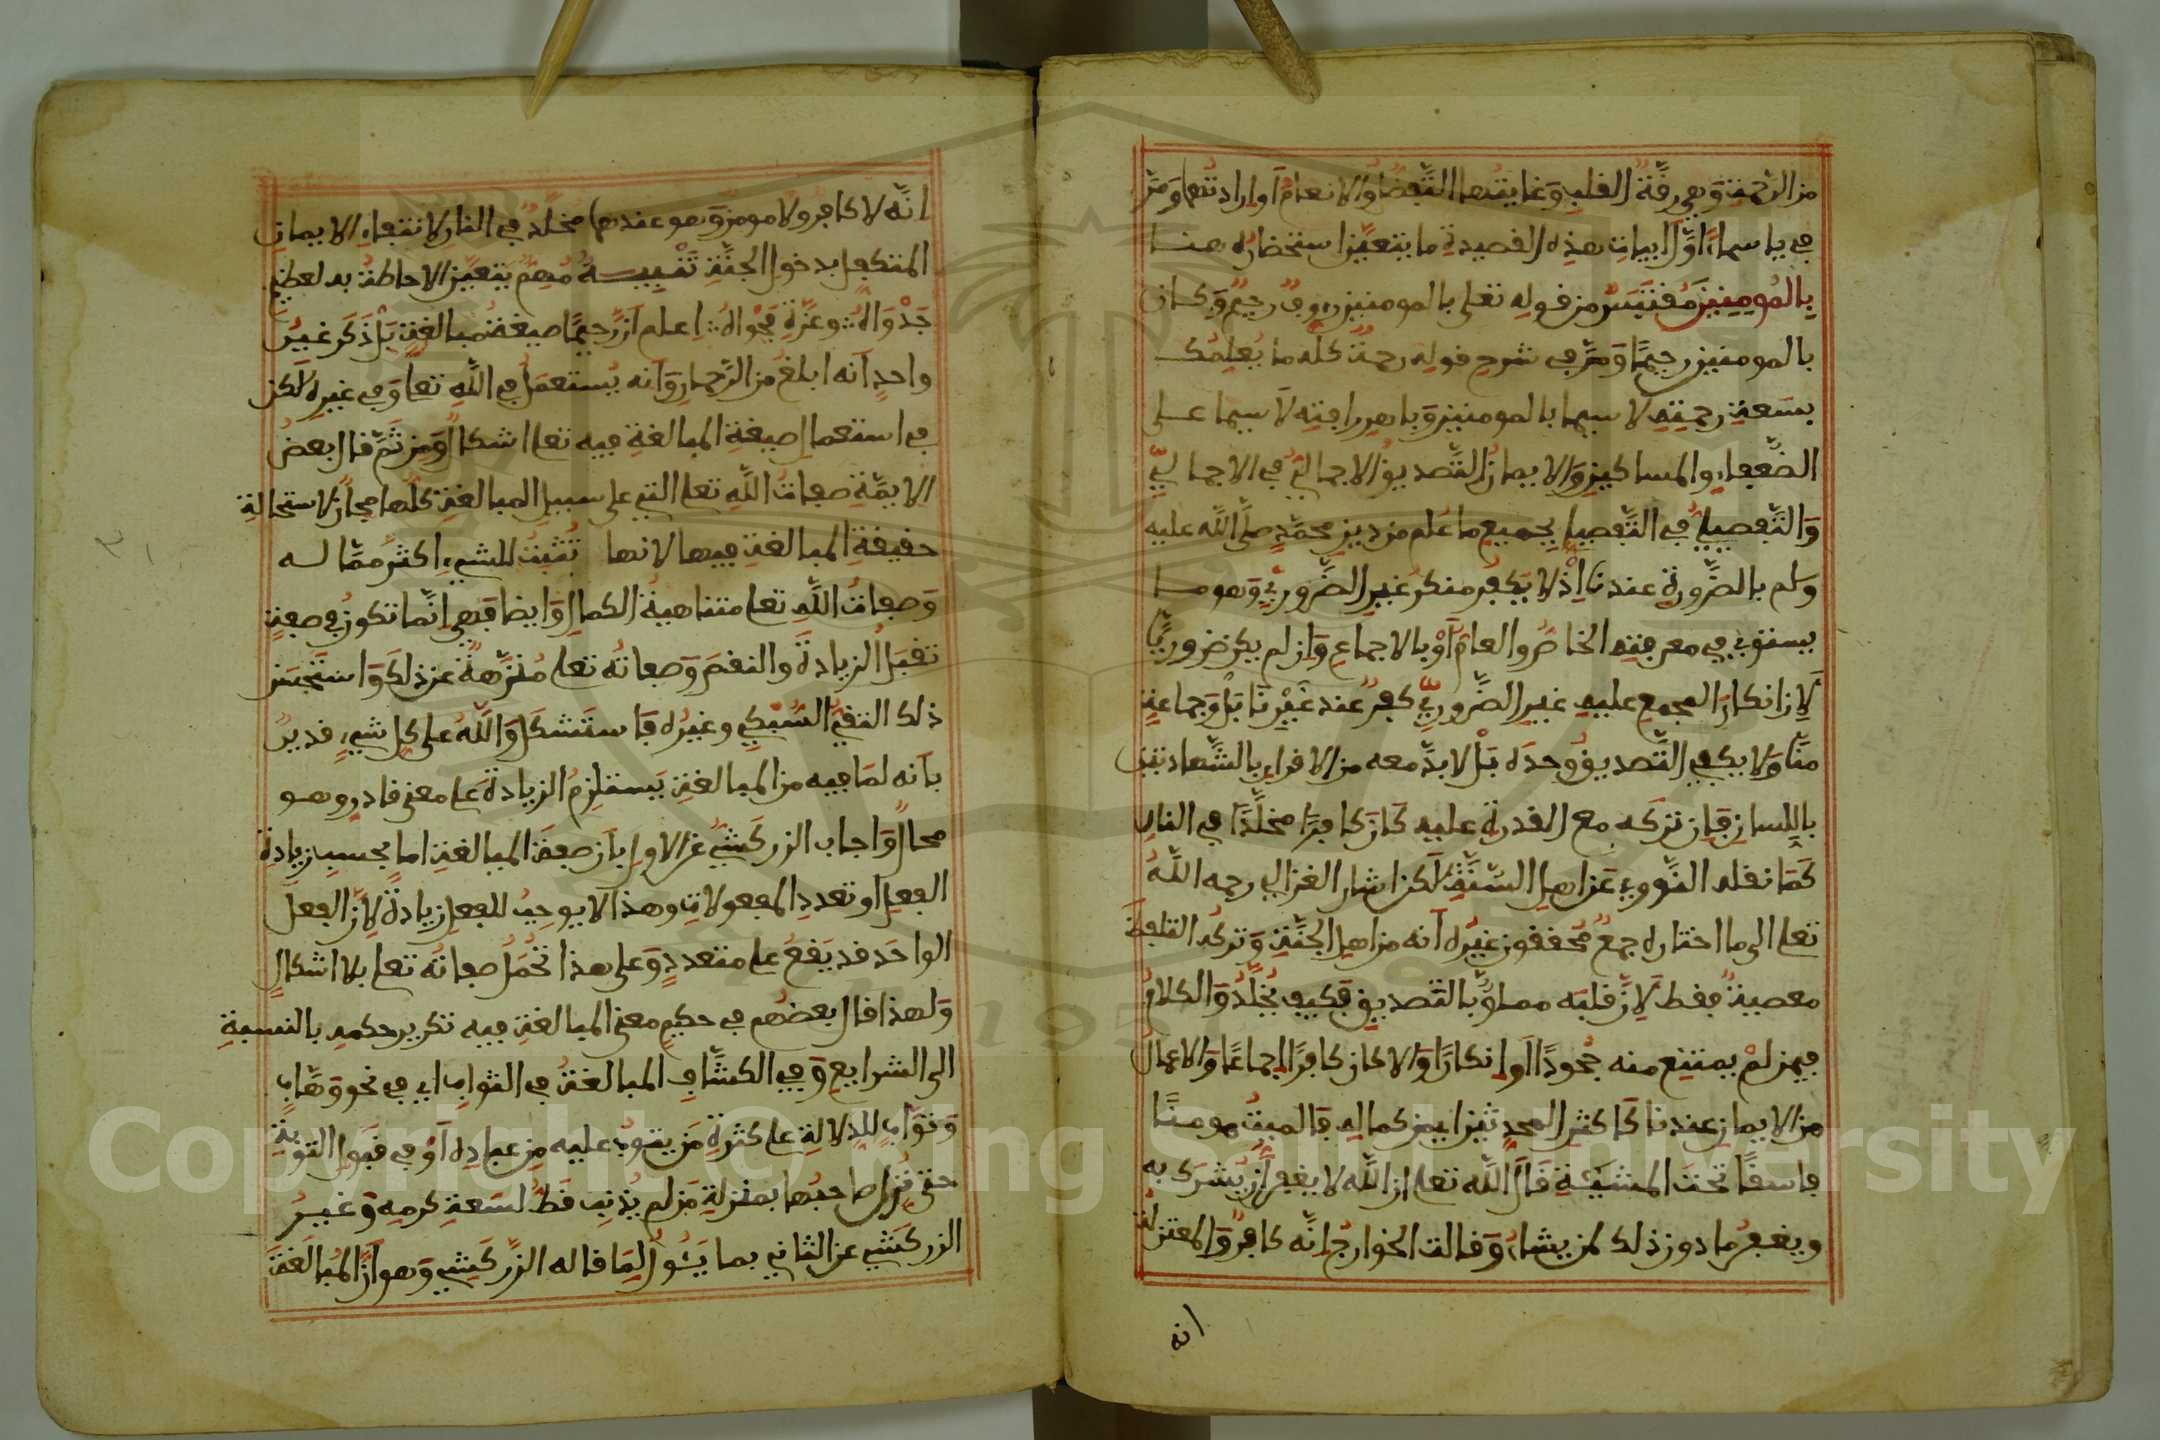 من الرحمة وهي رقة القلب وغايتها التفضل والانعام او ارادتهما ومر
في يا سماء اول ابيات هذه القصيدة ما يتعين استحضاره هنا
بالمومنين مقتبس من قوله تعلى بالمومنين رءوف رحيم وكان
بالمومنين رحيما ومر في شرح قوله رحمة كله ما يعلمك
بسعة رحمته لا سيما بالمومنين وباهر رافته لا سيما على
الضعفاء والمساكين والايمان التصديق الاجمالي في الاجمالي
والتفصيلي في التفصيلي بجميع ما علم من دين محمد صلى الله عليه
وسلم بالضرورة عندنا اذ لا يكفر منكر غير الضروري وهو ما
يستوي في معرفته الخاص والعام او بالاجماع وان لم يكن ضروريا
لان انكار المجمع عليه غير الضروري كفر عند غيرنا بل وجماعة
منا ولا يكفي التصديق وحده بل لا بد معه من الاقرار بالشهادتين
باللسان فان تركه مع القدرة عليه كان كافرا مخلدا في النار
كما نقله النووي عن اهل السنة لكن اشار الغزالي رحمه الله
تعلى الى ما اختاره جمع محققون غيره انه من اهل الجنة وتركه التلفظ
معصية فقط لان قلبه مملو بالتصديق فكيف يخلد والكلام
فيمن لم يمتنع منه جحودا او انكارا والا كان كافرا اجماعا والاعمال
من الايمان عندنا كاكثر المحدثين اي من كماله فالميت مومنا
فاسقا تحت المشيئة قال الله تعلى ان الله لا يغفر ان يشرك به
ويغفر ما دون ذلك لمن يشاء وقالت الخوارج انه كافر والمعتزلة
انه
انه لا كافر ولا مومن وهو عندهما مخلد في النار لانتفاء الايمان
المتكفل بدخول الجنة تنبيه مهم يتعين الاحاطة به لعظيم
جدواه وعزة فحواه اعلم ان رحيما صيغة مبالغة بل ذكر غير
واحد انه ابلغ من الرحمان وانه يستعمل في الله تعلى وفي غيره لكن
في استعمال صيغة المبالغة فيه تعلى اشكال ومن ثم قال بعض
الايمة صفات الله تعلى التي على سبيل المبالغة كلها مجاز لاستحالة
حقيقة المبالغة فيها لانها تثبت للشيء اكثر مما له
وصفات الله تعلى متناهية الكمال وايضا فهي انما تكون في صفة
تقبل الزيادة والنقص وصفاته تعلى منزهة عن ذلك واستحسن
ذلك التقي السبكي وغيره فاستشكل والله على كل شيء قدير
بانه لما فيه من المبالغة يستلزم الزيادة على معنى قادر وهو
محال واجاب الزركشي عن الاول بان صفة المبالغة اما بحسب زيادة
الفعل او تعدد المفعولات وهذا لا يوجب للفعل زيادة لان الفعل
الواحد قد يقع على متعدد وعلى هذا تحمل صفاته تعلى بلا اشكال
ولهذا قال بعضهم في حكيم معنى المبالغة فيه تكرير حكمه بالنسبة
الى الشرايع وفي الكشاف المبالغة في التواب اي في نحو وهاب
وتواب للدلالة على كثرة من يتوب عليه من عباده او في قبول التوبة
حتى نزل صاحبها بمنزلة من لم يذنب قط لسعة كرمه وغير
الزركشي عن الثاني بما يئول لما قاله الزركشي وهو ان المبالغة
Copyright © King Saud University
1957